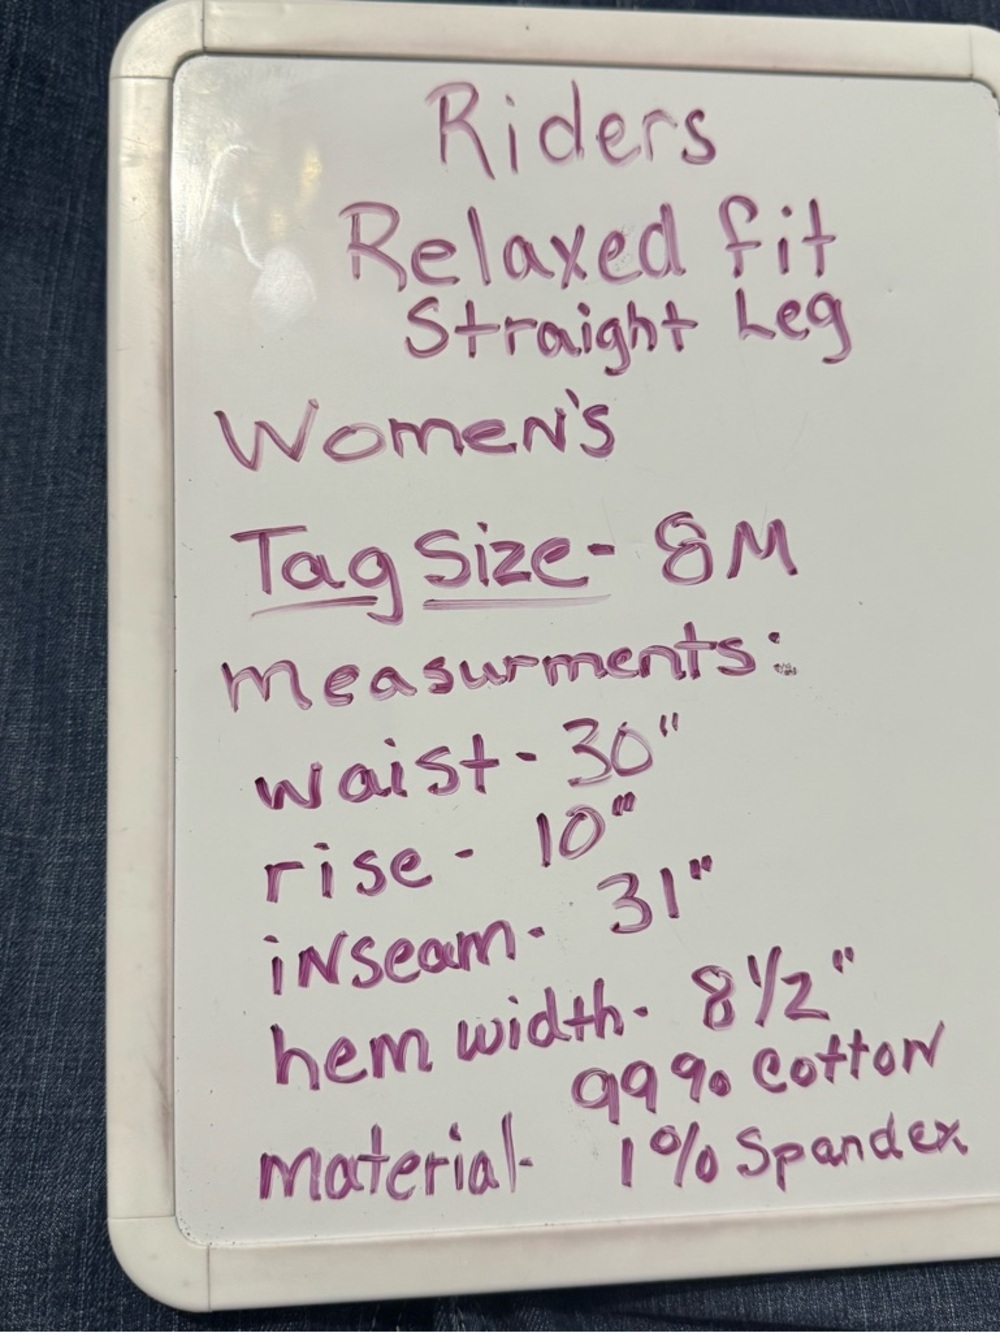 Riders
Relaxed fit
Straight Leg
Women's
Tag Size- 8M
measurments:
waist- 30"
rise- 10"
inseam- 31"
hem width- 8 1/2"
99% Cotton
material- 1% Spandex